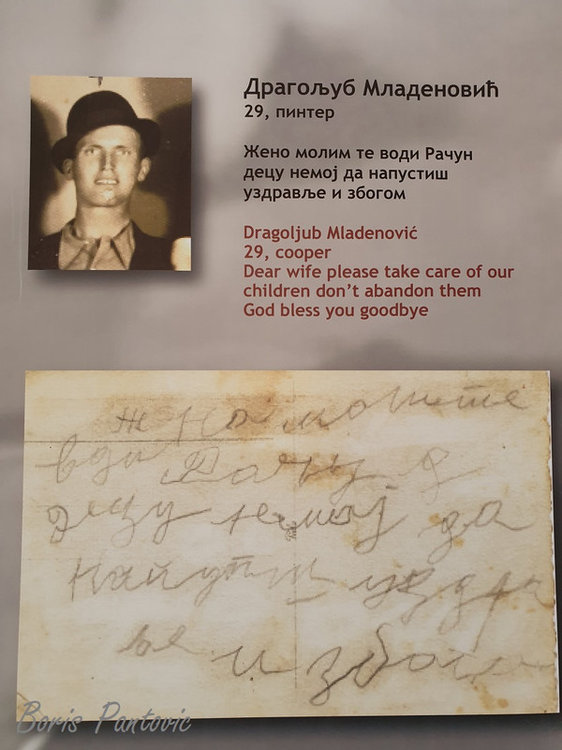 Драгољуб Младеновић
29, пинтер
Жено молим те води Рачун
децу немој да напустиш
уздравље и збогом
Dragoljub Mladenović
29, cooper
Dear wife please take care of our
children don't abandon them
God bless you goodbye
вди Рачу
децу немој да
и збого
Boris Pantovic